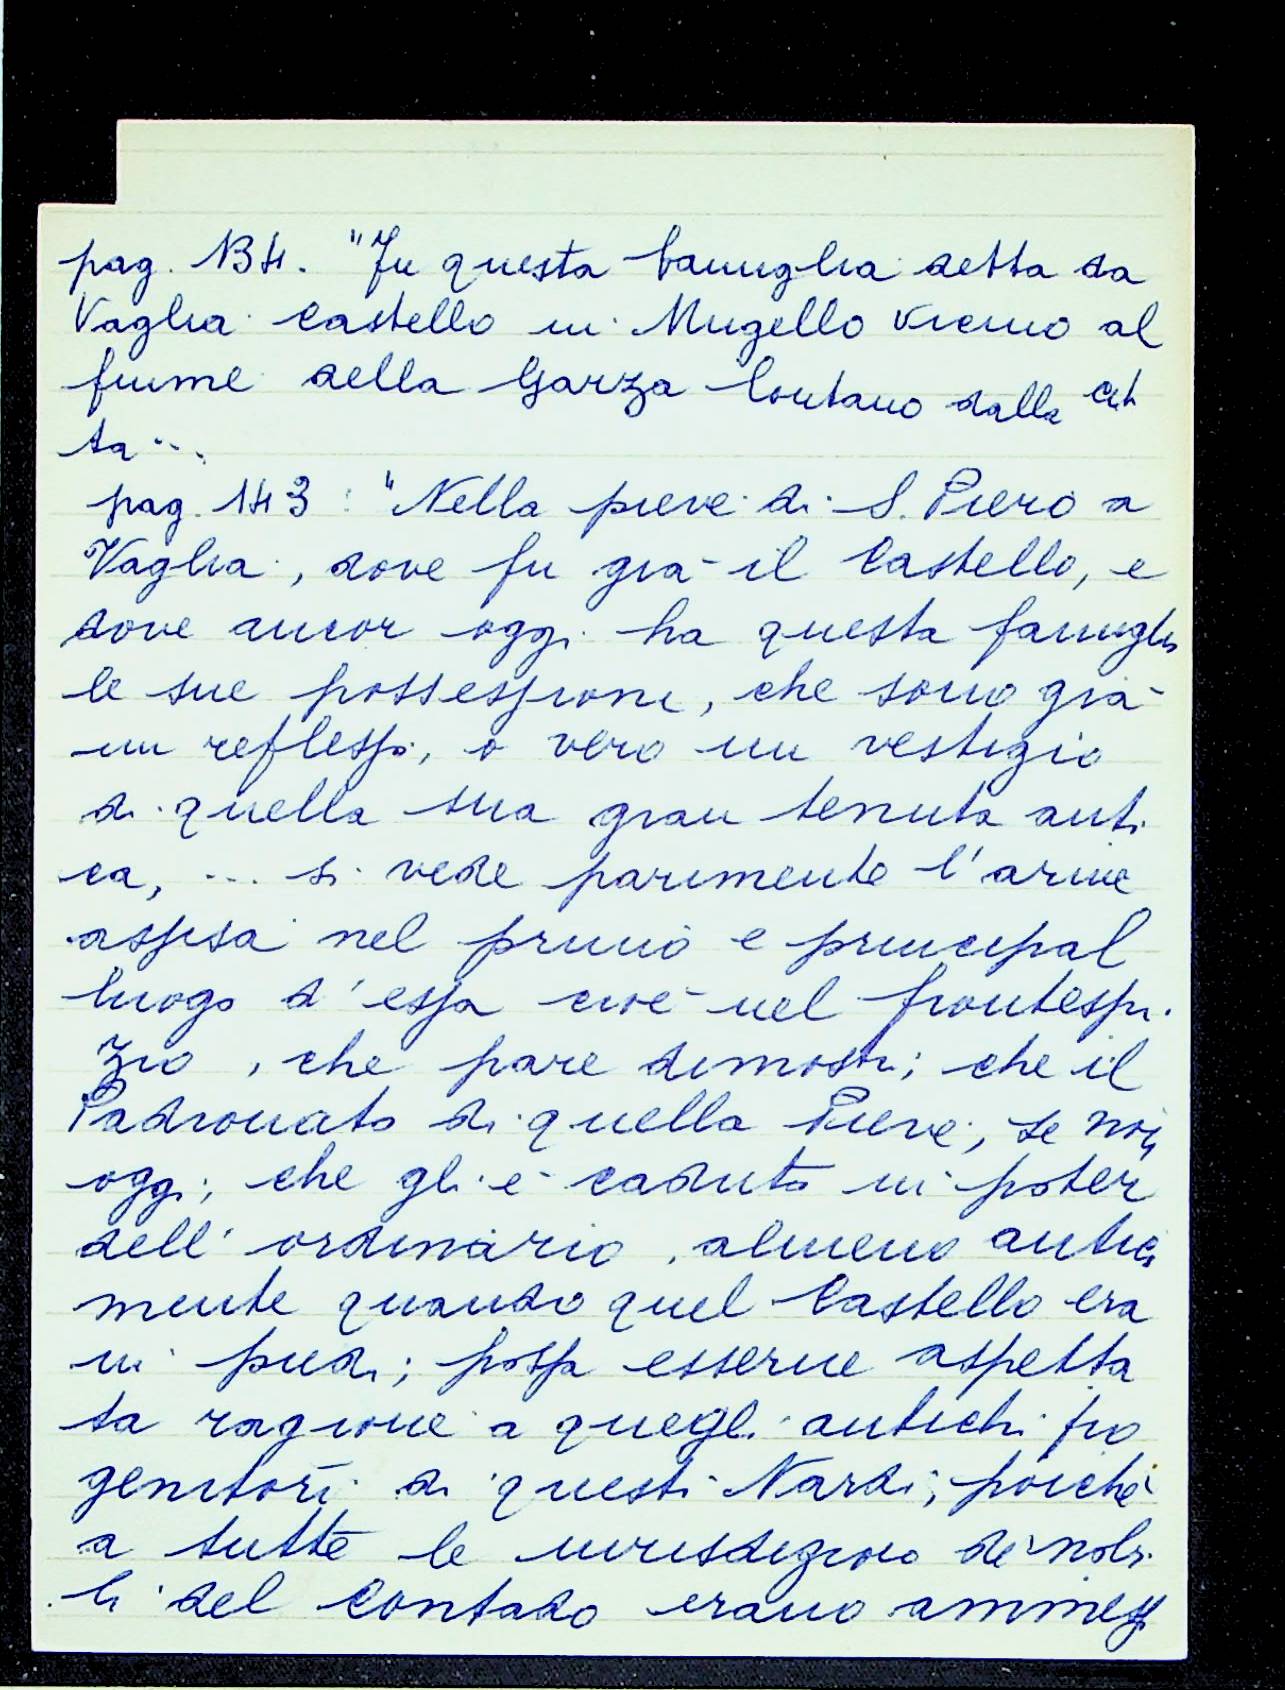 pag. 134. "Fu questa famiglia detta da
Vaglia Castello in Mugello vicino al
fiume della Garza lontano dalla cit
ta...
pag. 143: "Nella pieve di S. Piero a
Vaglia, dove fu già il Castello, e
dove ancor oggi ha questa famiglia
le sue possessioni, che sono già
un reflesso, o vero un vestigio
di quella sua gran tenuta anti
ca, ... si vede parimente l'arme
assisa nel primo e principal
luogo d'essa cioè nel frontespi.
zio, che pare dimostri; che il
Padronato di quella Pieve, se non
oggi; che gli è caduto in poter
dell'ordinario, almeno antica
mente quando quel Castello era
in piedi; possa esserne aspetta
ta ragione a quegli antichi pro
genitori di questi Nardi; poiché
a tutte le de' nobi.
li del Contado erano ammessi